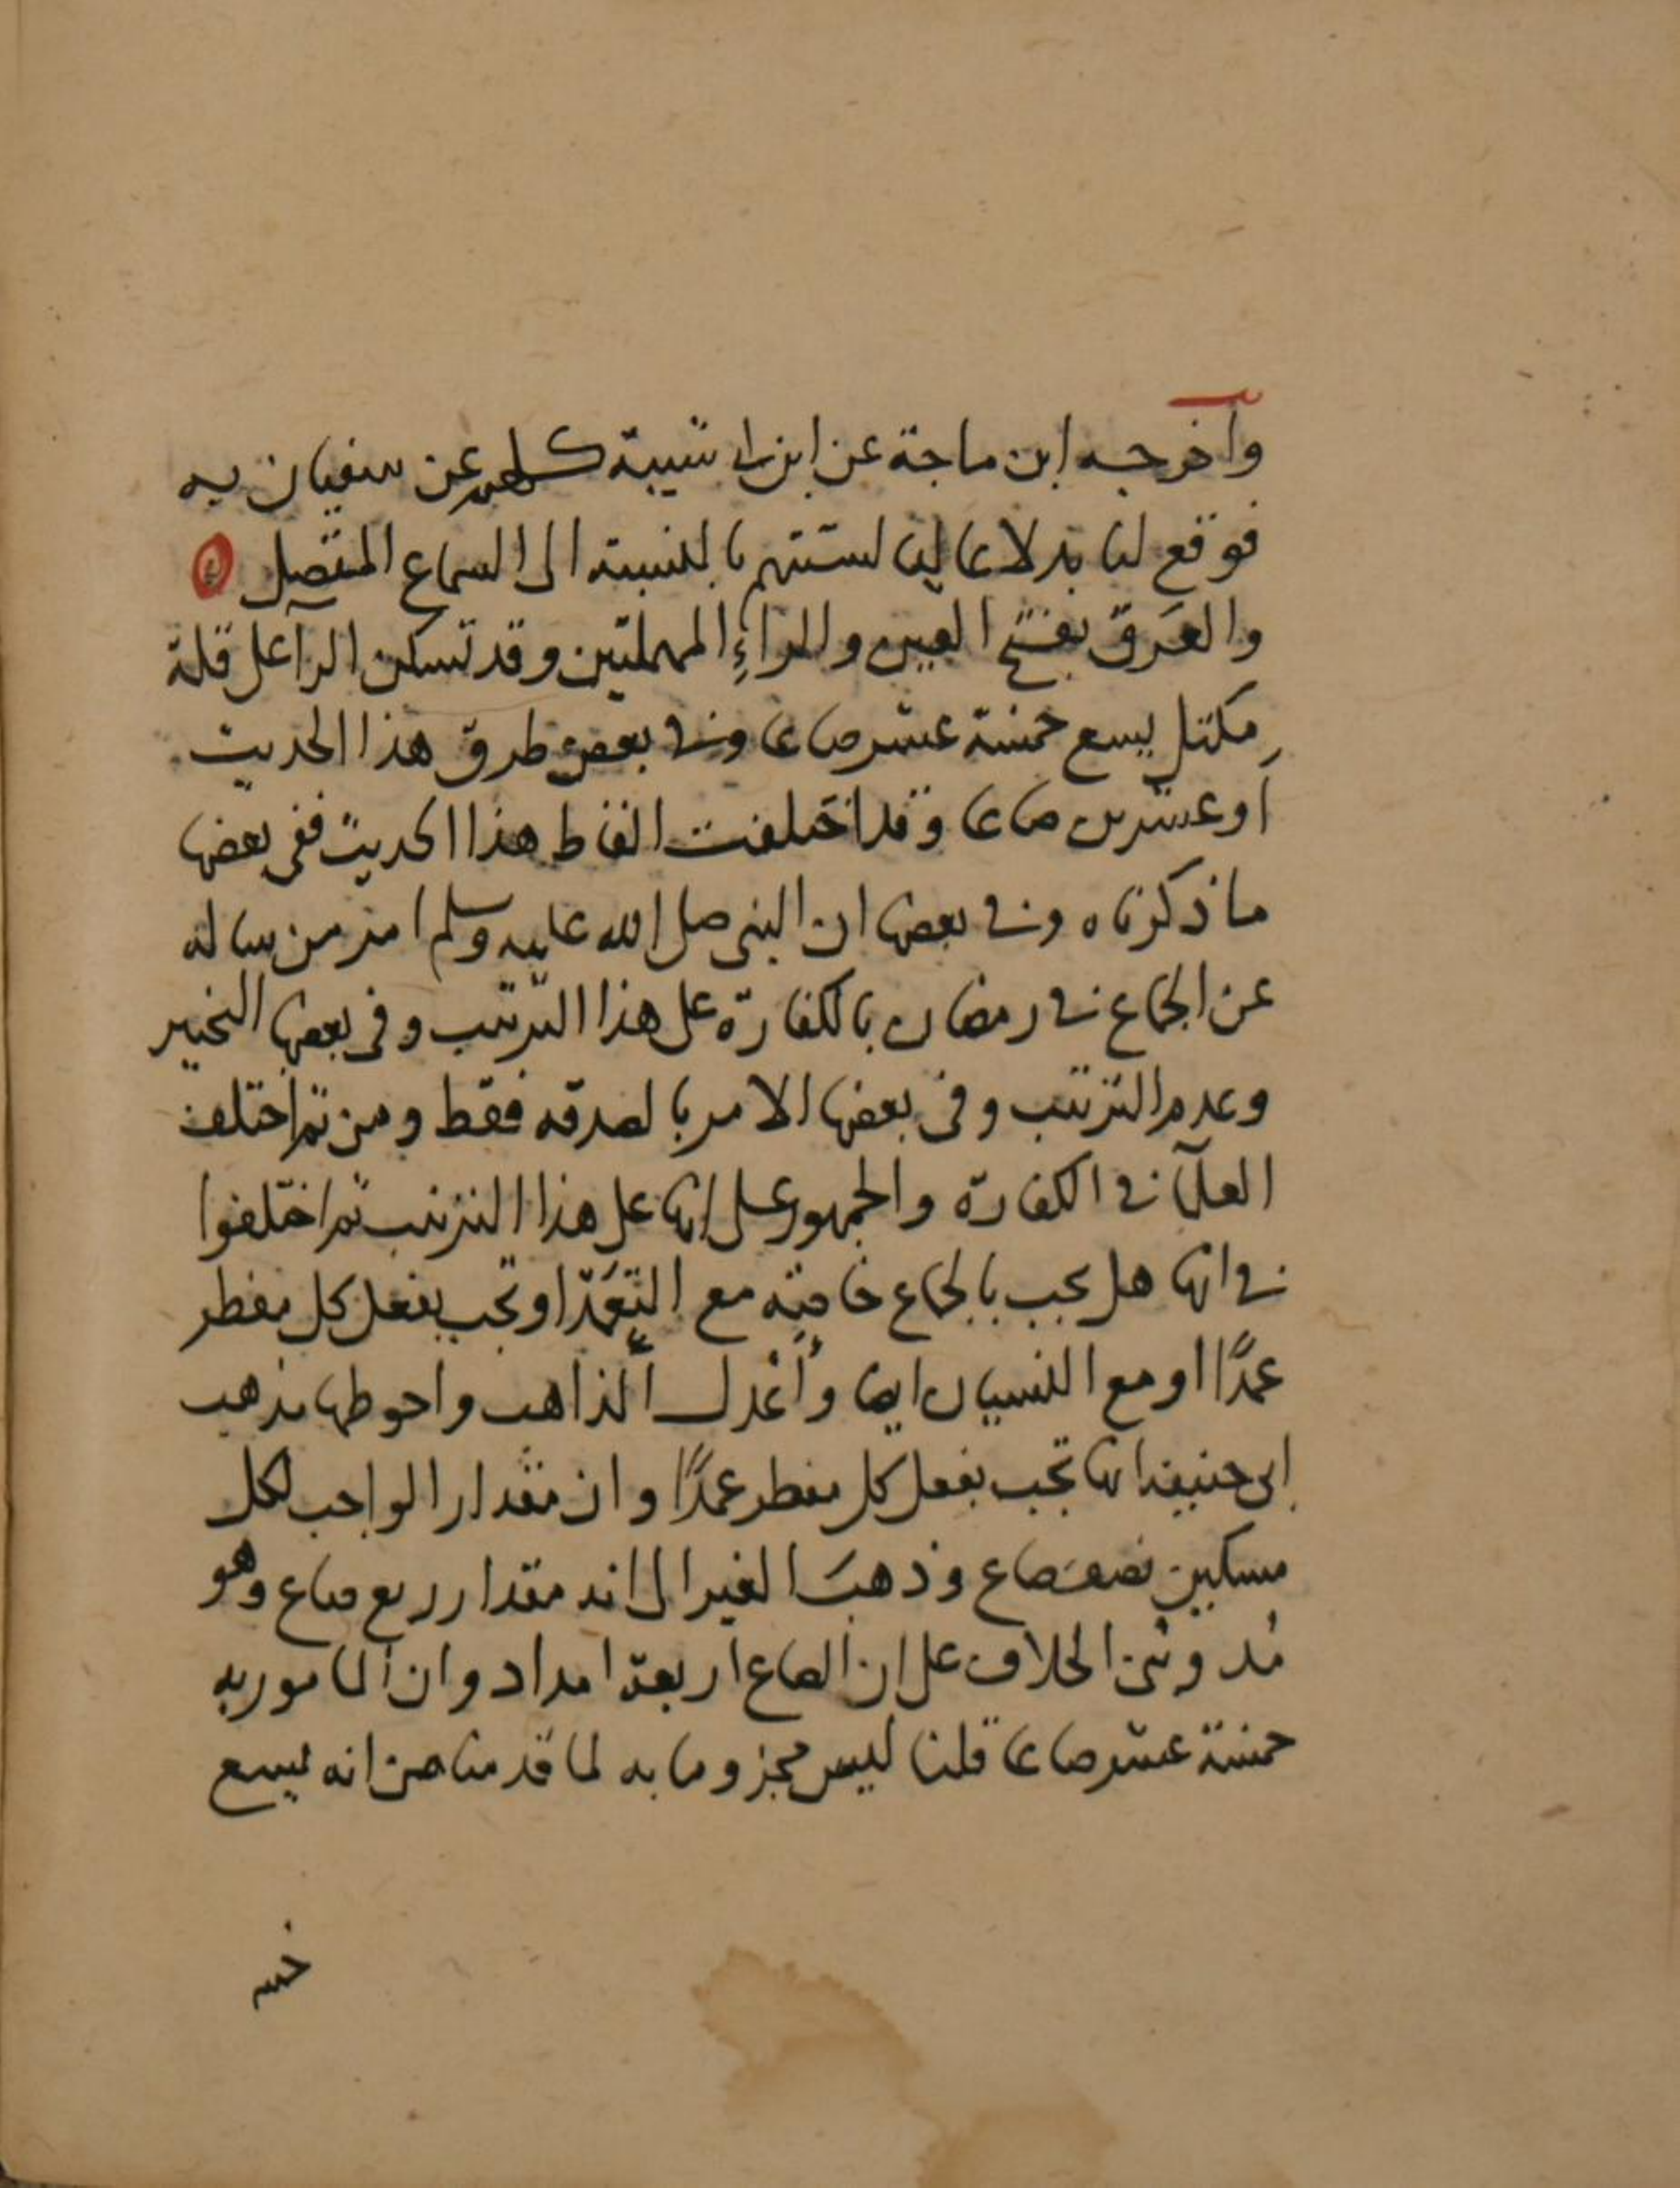 وأخرجه ابن ماجة عن ابن ابي شيبة كلهم عن سفيان به
فوقع لنا بدلا عاليا لستتهم بالنسبة الى السماع المتصل
والعَرَق بفتح العين والراءِ المهملتين وقد تسكن الرآ على قلة
مِكتل يسع خمسة عشر صاعا وفي بعض طرق هذا الحديث
أو عشرين صاعا وقد اختلفت الفاظ هذا الحديث ففى بعضها
ما ذكرناه وفي بعضها ان النبى صلى الله عليه وسلم امر من ساله
عن الجماع في رمضان بالكفارة على هذا الترتيب وفى بعضها التخيير
وعدم الترتيب وفى بعضها الامر بالصدقه فقط ومن ثم اختلف
العلمآ في الكفارة والجمهور على انها على هذا الترتيب ثم اختلفوا
في انها هل تجب بالجماع خاصّة مع التعَمّد او تجب بفعل كل مفطر
عمدًا او مع النسيان ايضا وأعْدل المذاهب واحوطها مذهب
ابى حنيفة انها تجب بفعل كل مفطر عمدًا وان مقدار الواجب لكل
مسكين نصف صاع وذهبَ الغير الى انه مقدار ربع صاع وهو
مُد وبُنى الخلاف على ان الصاع اربعة امداد وان المامور به
خمسة عشر صاعا قلنا ليس مجزوما به لما قدمنا من انه يسع
خمسه